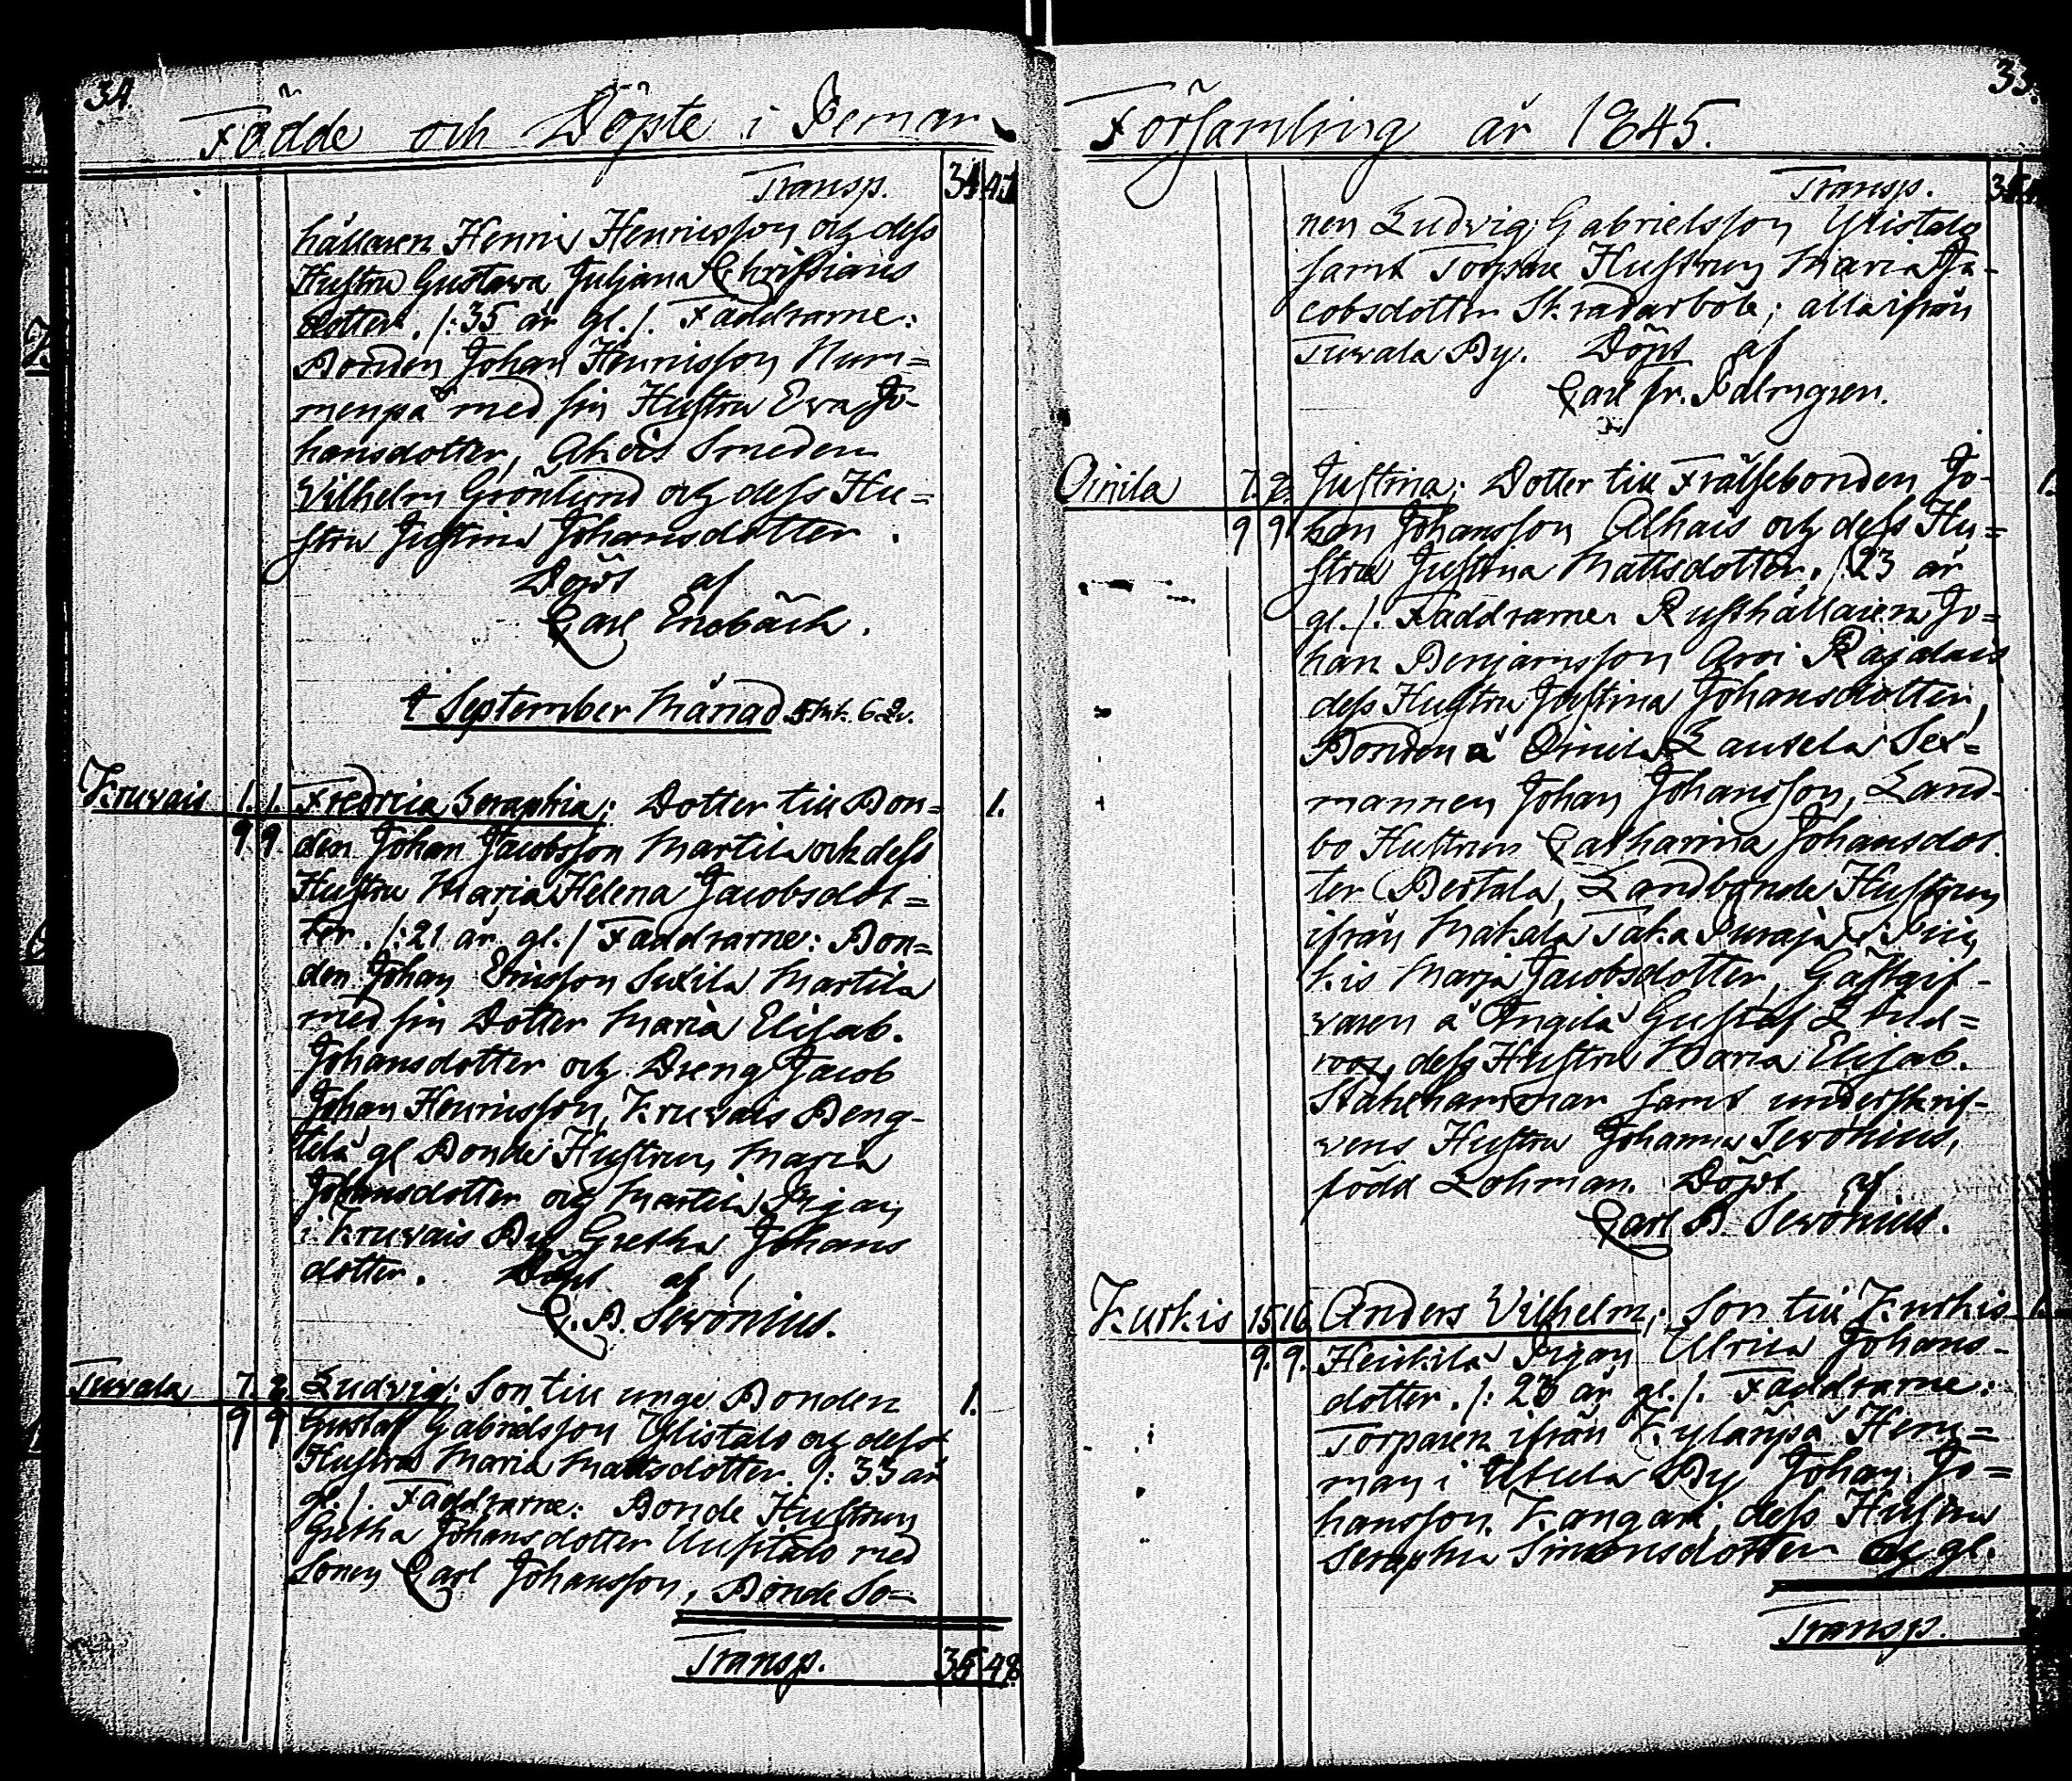 34.
Födde och Döpte i Pemar
Transp. 34 47
hållaren Henric Henricsson och dess
Hustru Gustava Juliana Christians
dotter. /: 35 år gl. /. Faddrarne:
Bonden Johan Henricsson Num=
menpä med sin Hustru Eva Jo-
hansdotter, Akois Smeden
Vilhelm Grönlund och dess Hu=
stru Justina Johansdotter.
Döpt af
Carl Enebäck.
September Månad
Kruvais 1. 1. Fredrica Seraphia; Dotter till Bon= 1.
9. 9. den Johan Jacobsson Martila och dess
Hustru Maria Helena Jacobsdot=
ter. /: 21 år gl. / Faddrarne: Bon=
den Johan Ericsson Suxila Martila
med sin Dotter Maria Elisab.
Johansdotter och Dreng Jacob
Johan Henricsson, Kruvais Beng-
telä gl Bonde Hustrun Maria
Johansdotter och Martila Pigan
i Kruvais By Gretha Johans
dotter. Döpt af
C. B. Sevonius.
Tuvala 7. 8. Ludvig; Son till unge Bonden 1.
9 9 Gustaf Gabrielsson Ylistalo och dess
Hustru Maria Mattsdotter /: 33 år
gl. /. Faddrarne: Bonde Hustrun
Gretha Johansdotter Uusitalo med
Sonen Carl Johansson, Bonde So=
Transp. 35 48
33.
Församling år 1845.
Transp.
nen Ludvig Gabrielsson Ylistalo
samt Torpare Hustrun Maria Ja-
cobsdotter Skradarböle; alla ifrån
Tuvala By. Döpt af
Carl Fr. Palmgren.
Oinila 7. 8. Justina; Dotter till Frälsebonden Jo- 1.
9 9 han Johansson Alhais och dess Hu=
stru Justina Mattsdotter. /: 23 år
gl. /. Faddrarne: Rusthållaren Jo=
han Benjamsson Aroi Rajalais
dess Hustru Justina Johansdotter,
Bonden å Oinila Lautela Sex=
mannen Johan Johansson, Land-
bo Hustrun Catharina Johansdot
ter Bertala, Landbonde Hustrun
ifrån Makala Taka i
kis Marja Jacobsdotter, Gästgif-
varen å Angila Gustaf Lind=
roos, dess Hustru Maria Elisab.
Stålhammar samt underskrif-
vens Hustru Johanna Sevonius,
född Lohman. Döpt af
Carl B. Sevonius.
Kurkis 15 16 Anders Vilhelm; Son till Kurkis 1.
9. 9. Heickilä Pigan Ulrica Johans-
dotter. /: 23 år gl. /. Faddrarne:
Torparen ifrån Kylänpä Hem=
man i By Johan Jo=
hansson Kangari, dess Hustru
Seraphia Simonsdotter och gl.
Transp.